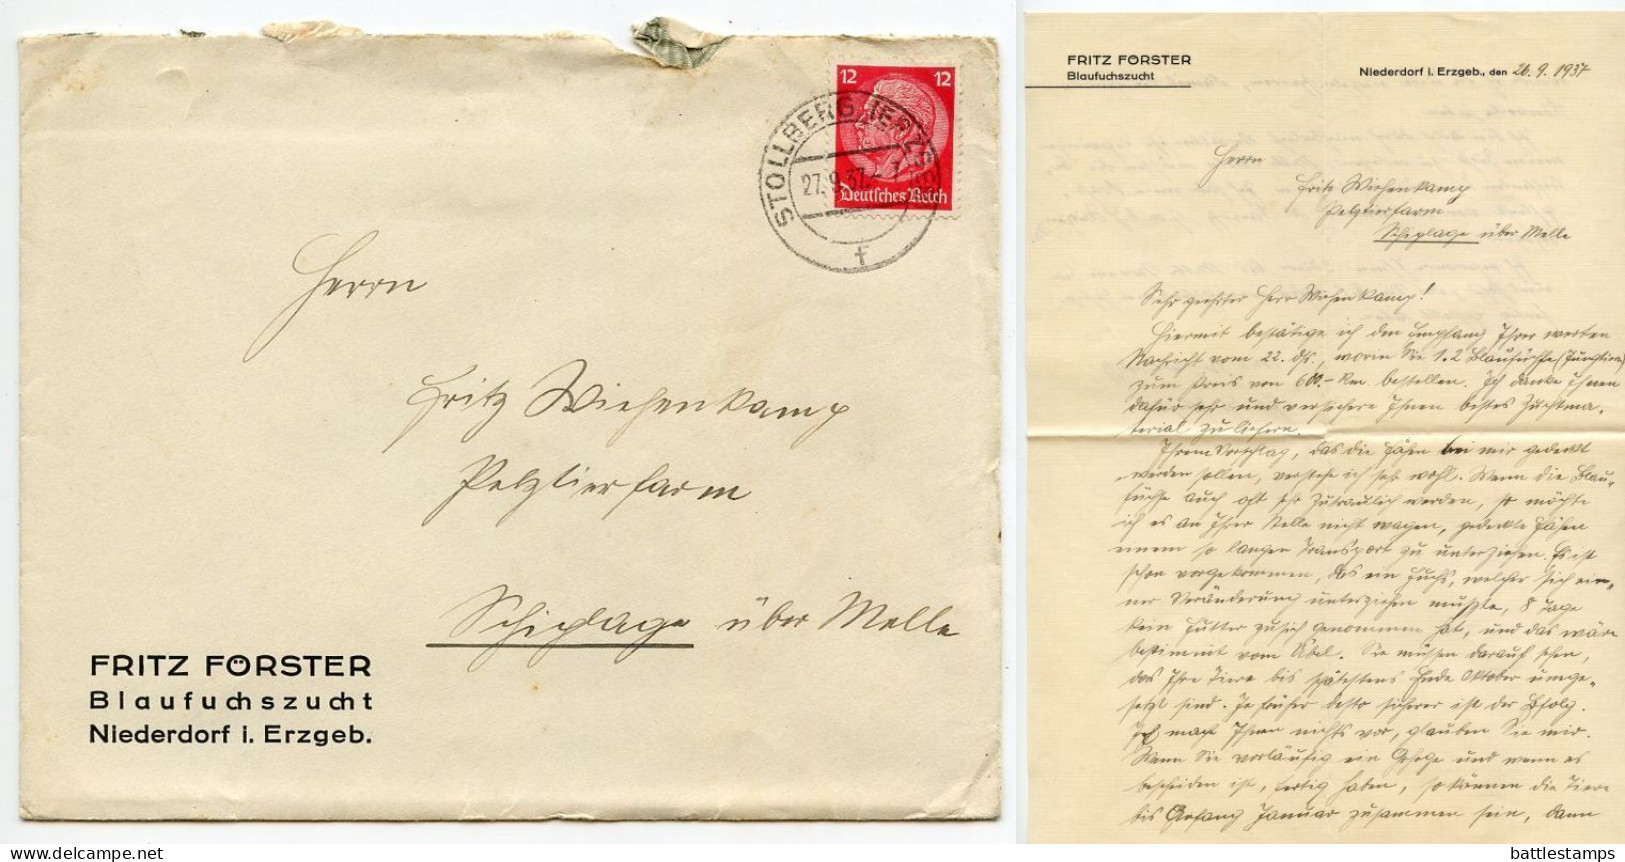 12 12
Deutsches Reich
STOLLBERG (ERZGEB)
27.9.37
f
Herrn
Fritz Wiesenkamp
Pelztierfarm
Schiplage über Melle
FRITZ FÖRSTER
Blaufuchszucht
Niederdorf i. Erzgeb.
FRITZ FÖRSTER
Blaufuchszucht
Niederdorf i. Erzgeb., den 26.9.1937
Herrn
Fritz Wiesenkamp
Pelztierfarm
Schiplage über Melle
Sehr geehrter Herr Wiesenkamp!
Hiermit bestätige ich den Empfang Ihrer werten
Nachricht vom 22. ds., worin Sie 1.2 Blaufüchse (Jungtiere)
zum Preis von 600,- Rm. bestellen. Ich danke Ihnen
dafür sehr und versichere Ihnen bestes Zuchtma-
terial zu liefern.
Ihrem Vorschlag, das die Fähen bei mir gedeckt
werden sollen, verstehe ich sehr wohl. Wenn die Blau-
füchse auch oft sehr zutraulich werden, so möchte
ich es an Ihrer Stelle nicht wagen, gedeckte Fähen
einem so langen Transport zu unterziehen. Es ist
schon vorgekommen, das ein Fuchs, welcher sich ein-
ner Veränderung unterziehen mußte, 8 Tage
kein Futter zu sich genommen hat, und das wäre
bestimmt vom Übel. Sie müssen darauf sehen,
das Ihre Tiere bis spätestens Ende Oktober umge-
setzt sind. Je früher desto sicherer ist der Erfolg.
Ich mach Ihnen nichts vor, glauben Sie mir.
Wenn Sie vorläufig ein Gehege und wenn es
bescheiden ist, fertig haben, so können die Tiere
bis Anfang Januar zusammen sein, dann
battlestamps
delcampe.net